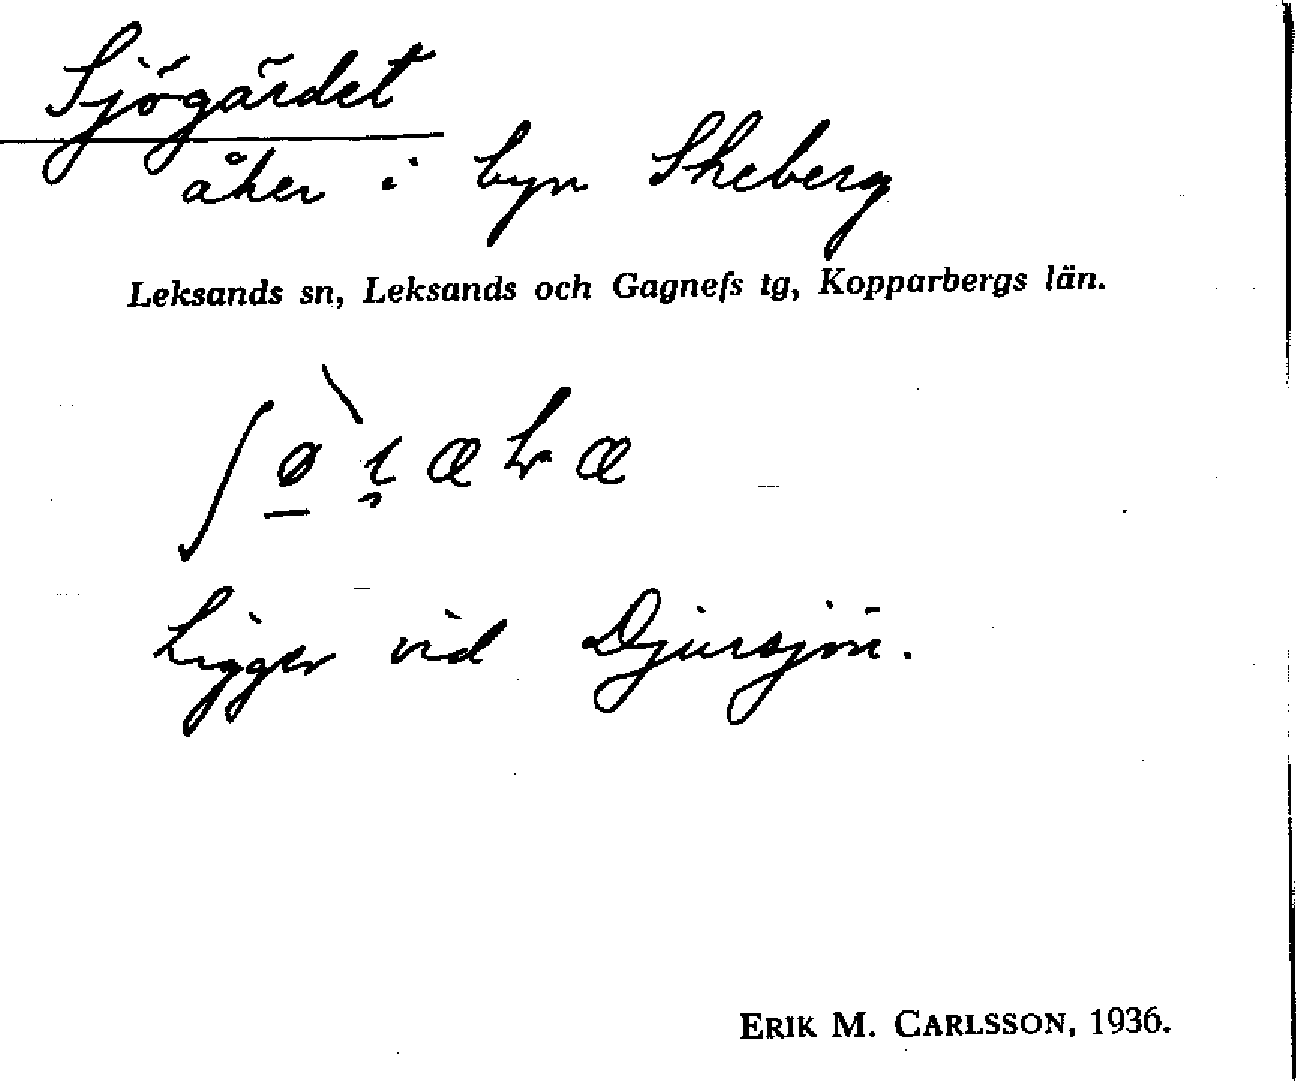 Sjögärdet
åker i byn Skeberg
Leksands sn, Leksands och Gagnefs tg, Kopparbergs län.
Ligger vid Djursjön.
ERIK M. CARLSSON, 1936.